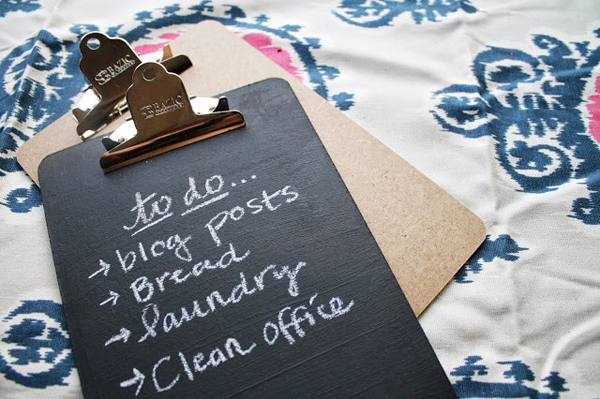 to do...
→ blog posts
→ Bread
→ laundry
→ Clean office